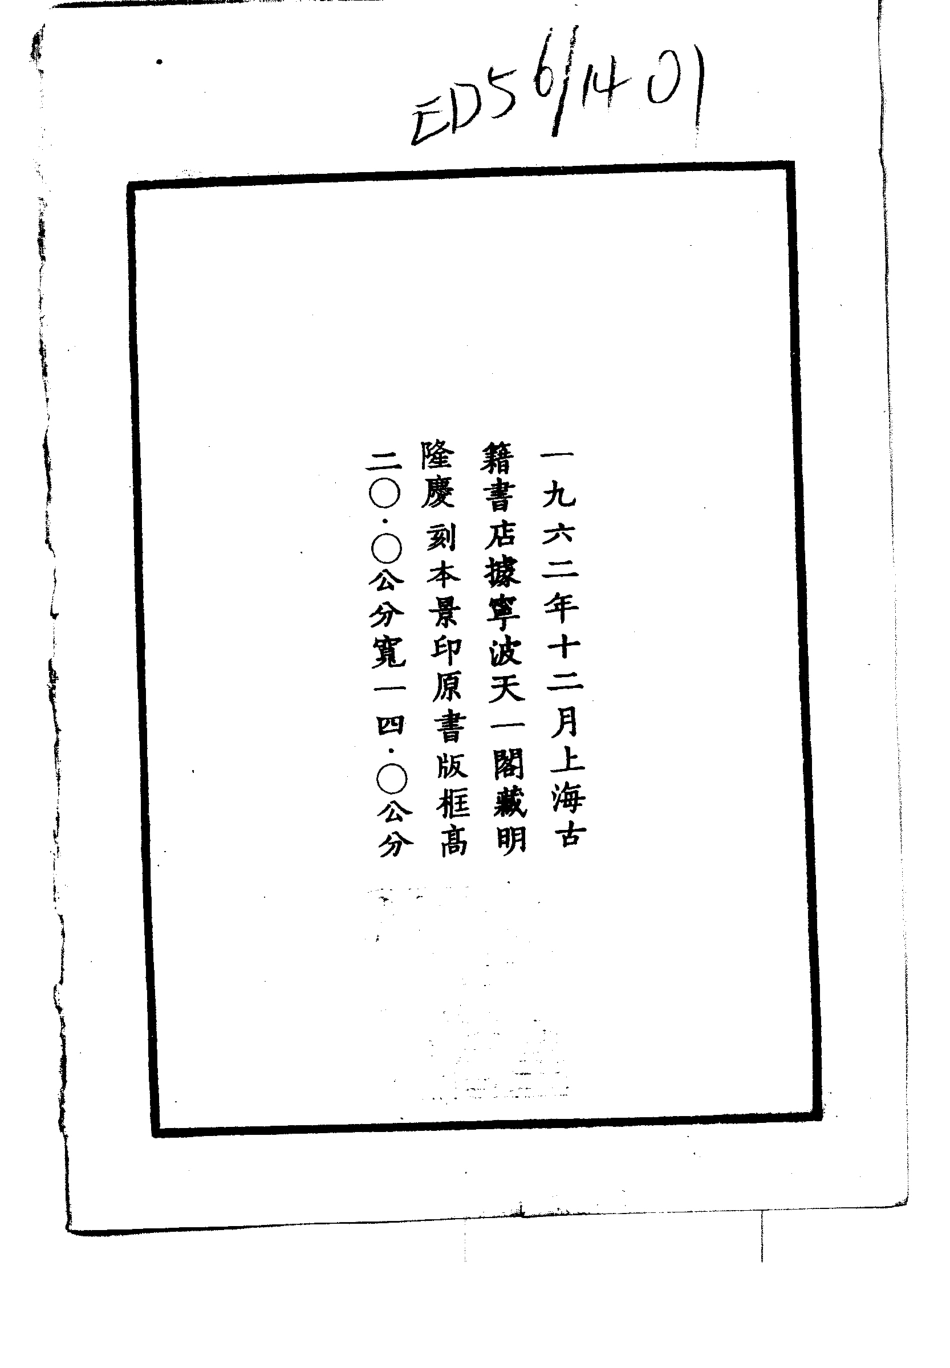 ED56/1401
一九六二年十二月上海古
籍書店據寧波天一閣藏明
隆慶刻本景印原書版框高
二〇·〇公分寬一四·〇公分